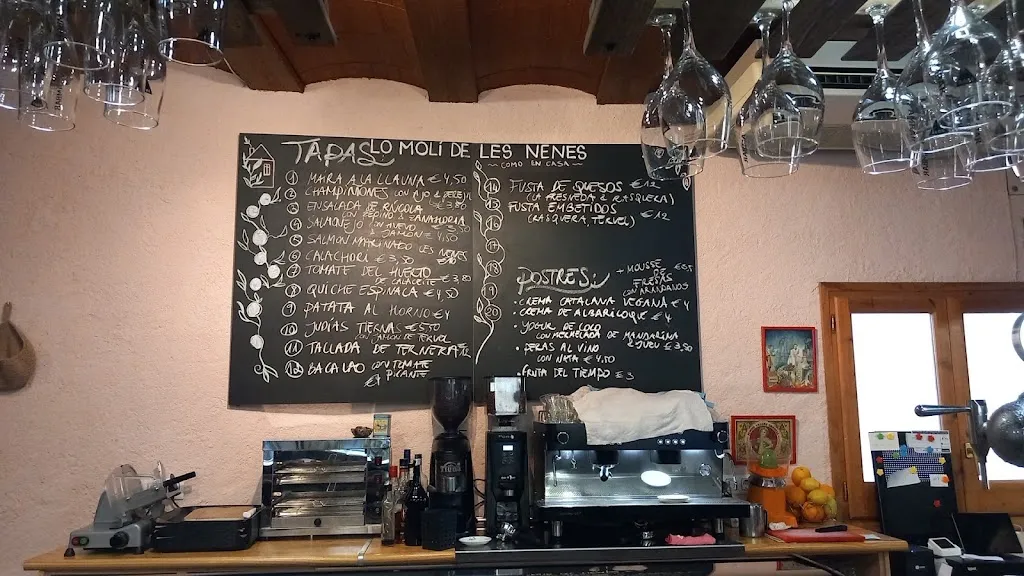 TAPAS LO MOLÍ DE LES NENES
COMO EN CASA
1 MAIRA A LA LLAUNA € 4,50
2 CHAMPIÑONES CON AJO & PEREJIL
3 ENSALADA DE RÚCOLA € 3,80
CON PEPINO & ZANAHORIA
4 SALMOREJO CON HUEVO € 3,50
& JAMON
5 SALMON MARINADO LES NENES
6 CALACHORI € 3,50
7 TOMATE DEL HUERTO
DE CALACEITE € 3,80
8 QUICHE ESPINACA € 4,50
9 PATATA AL HORNO € 4
10 JUDIAS TIERNAS € 5,50
CON JAMON DE TERUEL
11 TALLADA DE TERNERA
12 BACALAO CON TOMATE
€ 7 PICANTE
14 FUSTA DE QUESOS € 12
(LA FRESNEDA & RASQUERA)
15 FUSTA EMBETIDOS € 12
16 (RASQUERA, TERUEL)
17
18
19
20
POSTRES
+ MOUSSE
DE
FRESAS
CON ARANDANOS
• CREMA CATALANA VEGANA € 4
• CREMA DE ALBARICOQUE € 4
• YOGUR DE COCO
CON MERMELADA DE MANDARINA
€ 3,50
• PERAS AL VINO
CON NATA € 4,50
• FRUTA DEL TIEMPO € 3